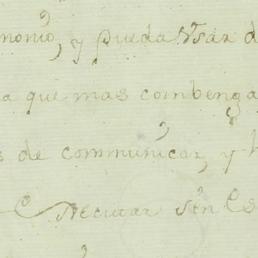 monio, y pueda Vsar d
a que mas combenga
s de communicar, y h
executar sin Es